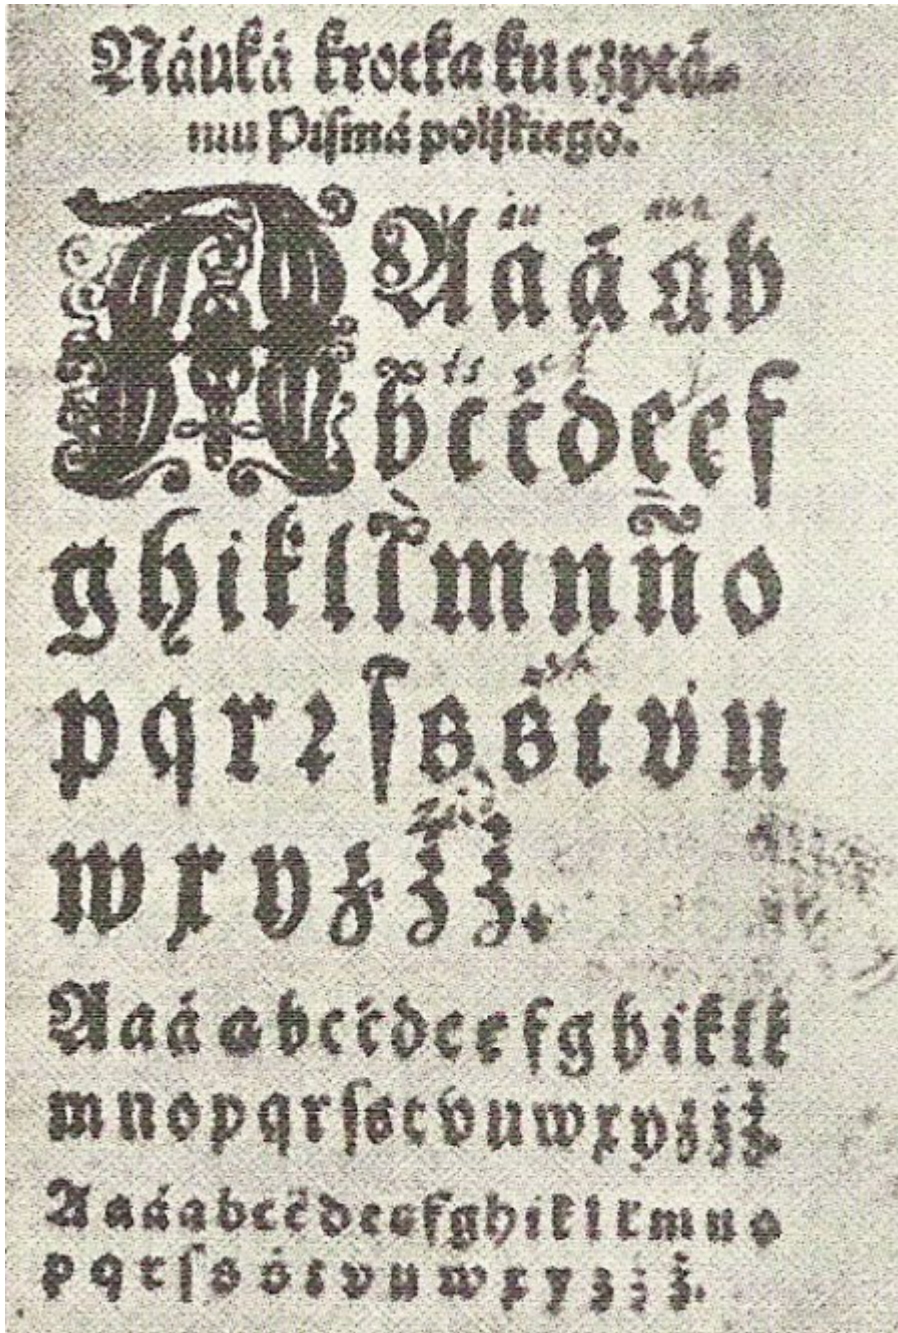 Náuká krotka ku czytá-
niu Pismá polskiego.
A a á ą b
b́ c ć d e ę f
g h i k l ł m n ñ o
p q r ꝛ ſ s ś t v u
w x y z ź ż.
A a á ą b c ć d e ę f g h i k l ł
m n o p q r ſ s t v u w x y z ź ż.
A a á ą b c ć d e ę f g h i k l ł m n o
p q r ſ s ś t v u w x y z ź ż.